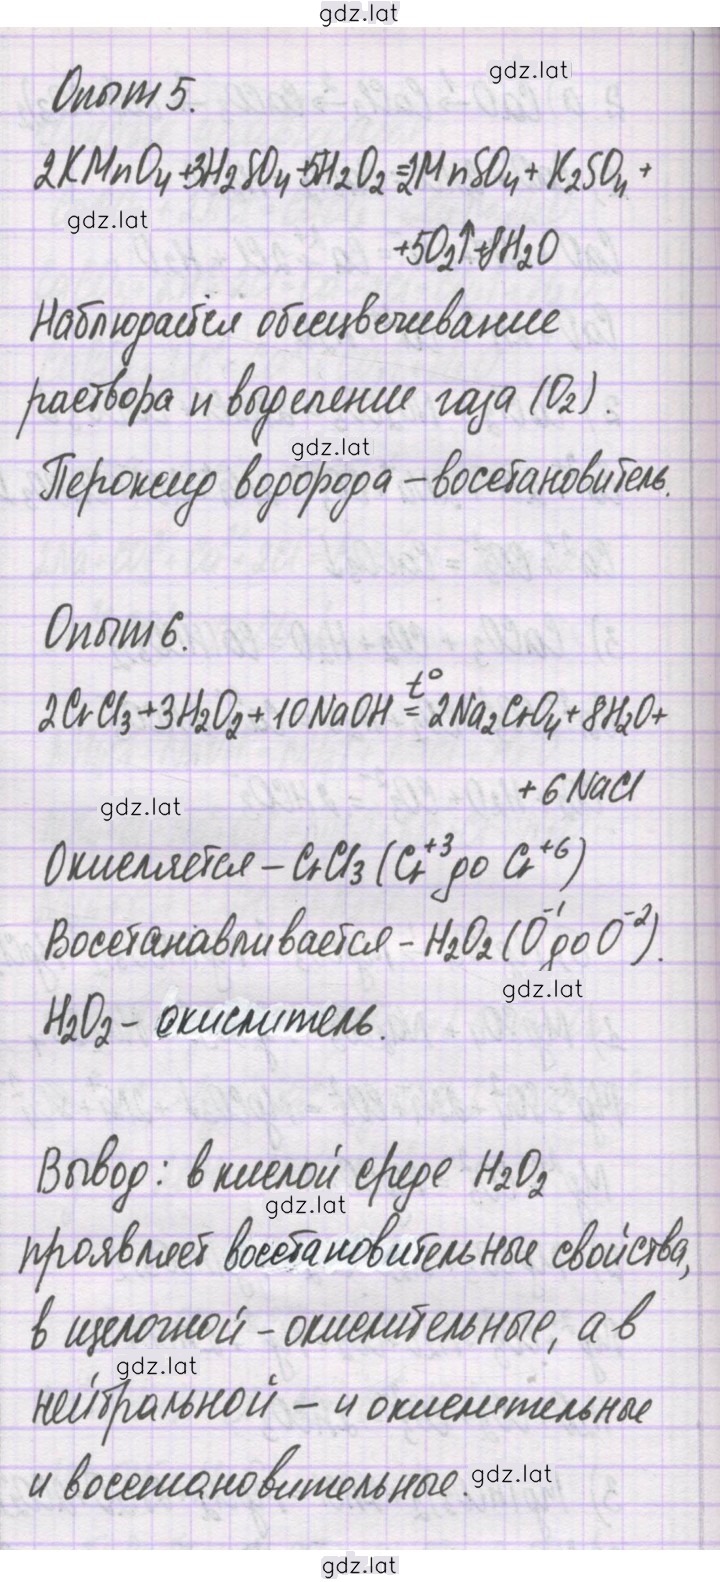 gdz.lat
gdz.lat
Опыт 5.
2KMnO₄+3H₂SO₄+5H₂O₂=2MnSO₄+K₂SO₄+
gdz.lat
+5O₂↑+8H₂O
Наблюдается обесцвечивание
раствора и выделение газа (O₂).
gdz.lat
Пероксид водорода – восстановитель.
Опыт 6.
2CrCl₃+3H₂O₂+10NaOH t°= 2Na₂CrO₄+8H₂O+
gdz.lat
+6NaCl
Окисляется – CrCl₃ (Cr⁺³ до Cr⁺⁶)
Восстанавливается – H₂O₂ (O⁻¹ до O⁻²).
gdz.lat
H₂O₂ – окислитель.
Вывод: в кислой среде H₂O₂
gdz.lat
проявляет восстановительные свойства,
в щелочной – окислительные, а в
gdz.lat
нейтральной – и окислительные
и восстановительные.
gdz.lat
gdz.lat